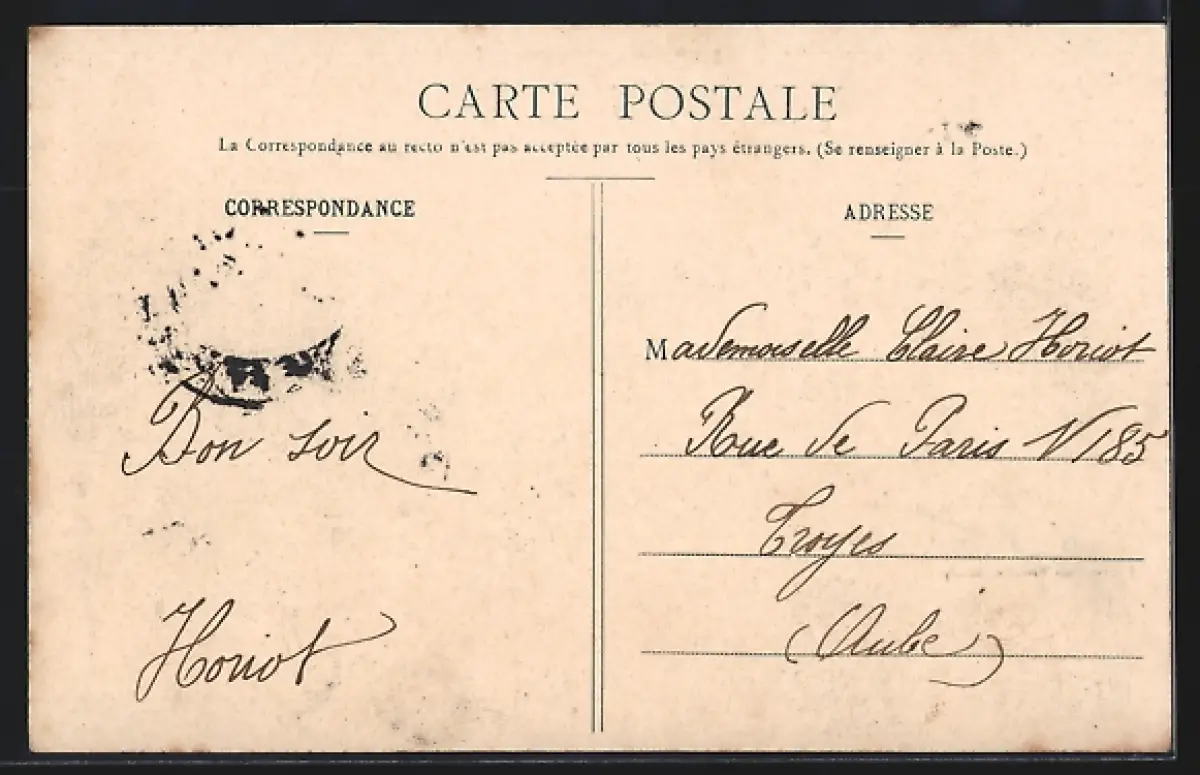 CARTE POSTALE
La Correspondance au recto n'est pas acceptée par tous les pays étrangers. (Se renseigner à la Poste.)
CORRESPONDANCE
Bon soir
Horiot
ADRESSE
Mademoiselle Claire Horiot
Rue de Paris N 185
Troyes
(Aube)